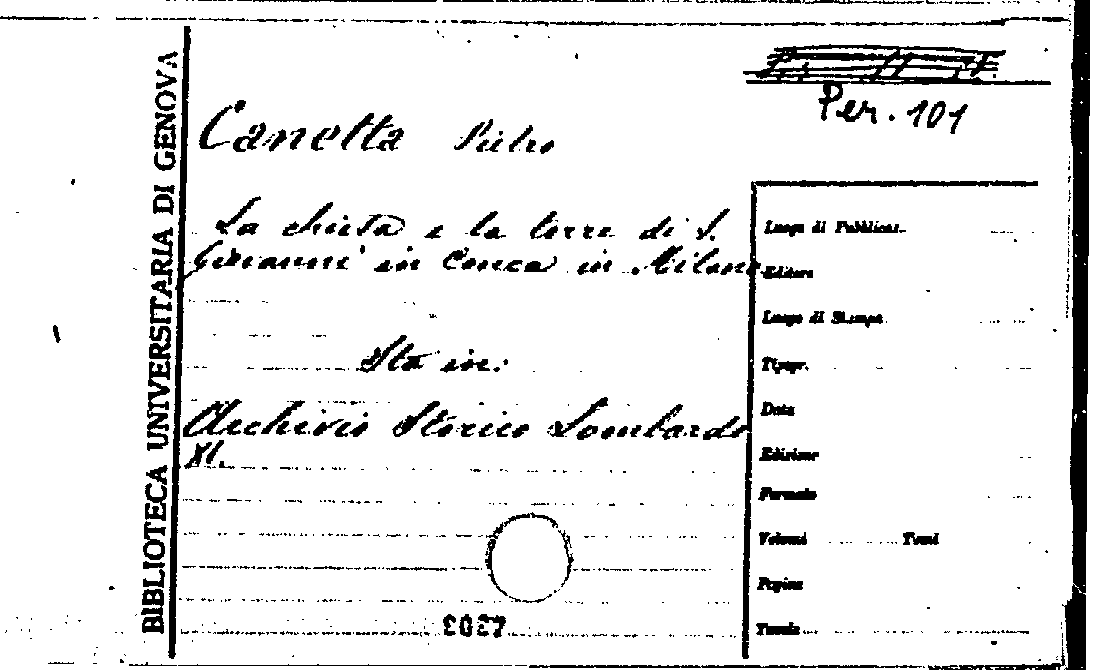 BIBLIOTECA UNIVERSITARIA DI GENOVA
Per. 101
Canetta Pietro
La chiesa e la torre di S.
Giovanni in Conca in Milano
Sta in:
Archivio Storico Lombardo
XI.
Luogo di Pubblicaz.
Editore
Luogo di Stampa
Tipogr.
Data
Edizione
Formato
Volumi Tomi
Pagine
Tavole